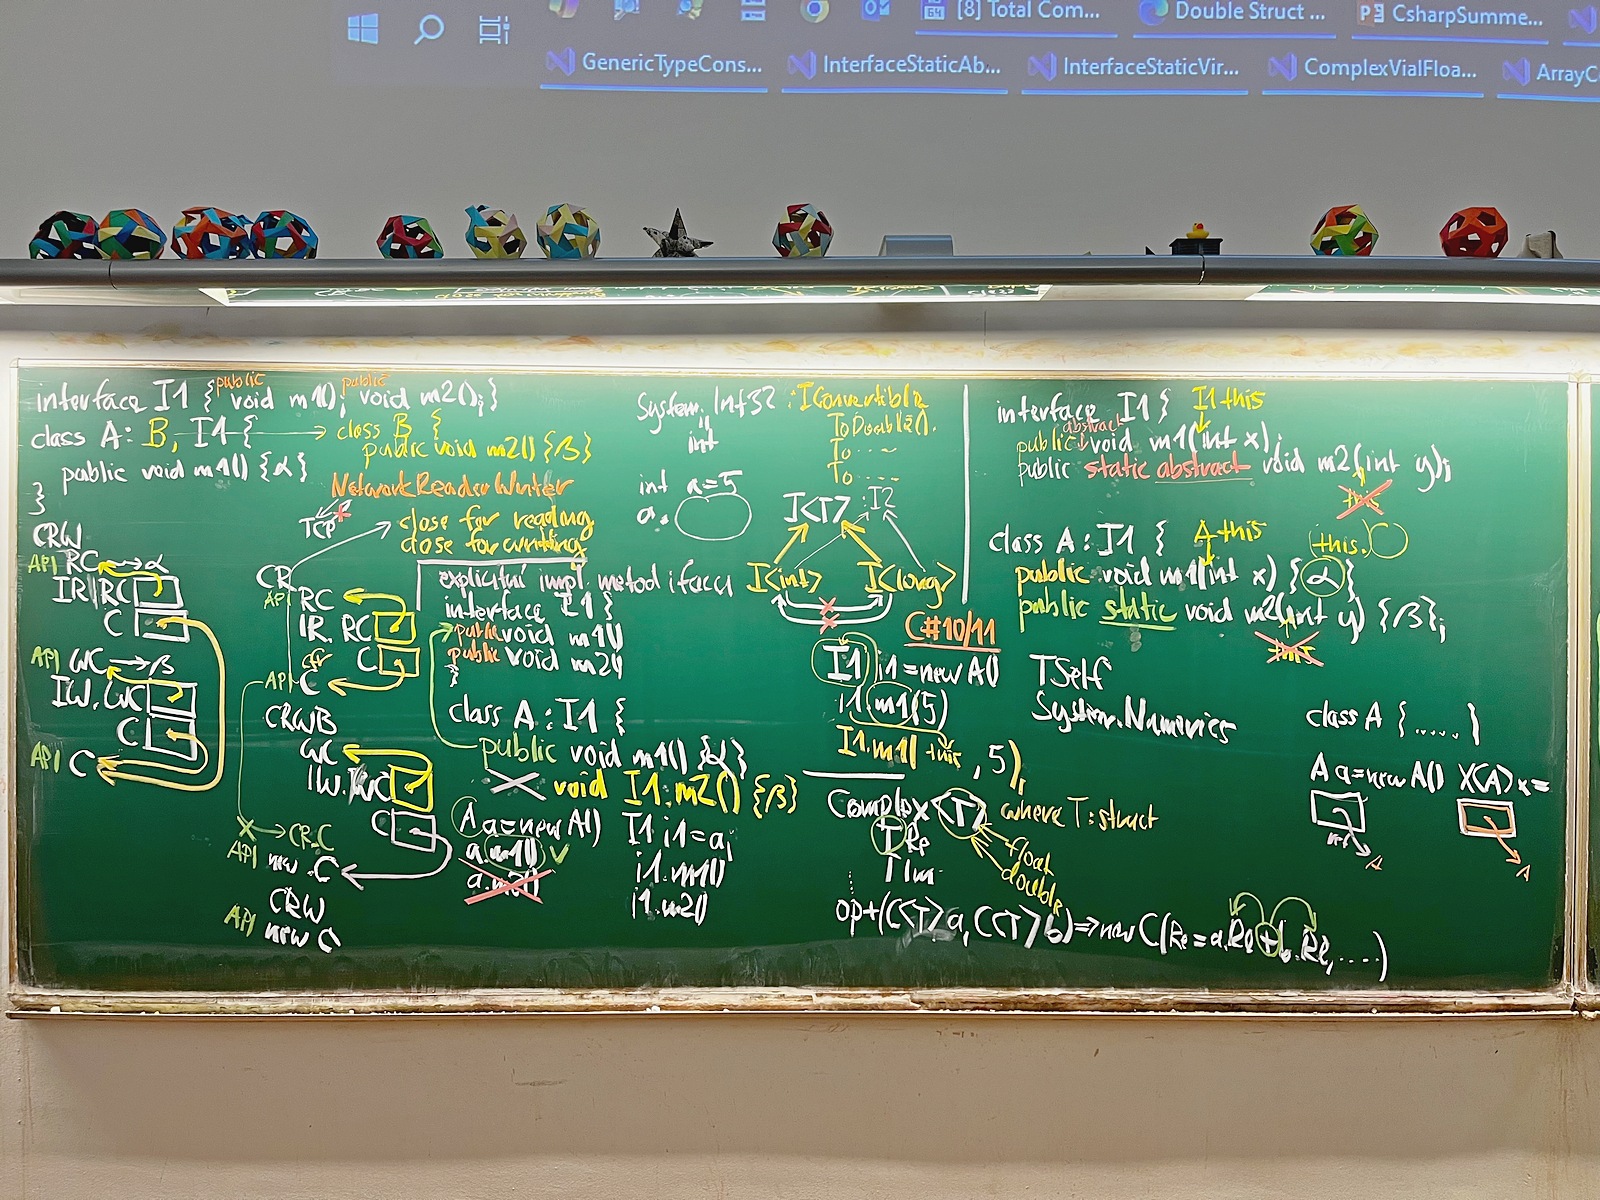 [8] Total Com...
Double Struct ...
CsharpSumme...
GenericTypeCons...
InterfaceStaticAb...
InterfaceStaticVir...
ComplexViaIFloa...
ArrayC
interface I1 { public void m1(); public void m2(); }
class A: B, I1 { → class B {
public void m2() {β}
public void m1() {α}
}
NetworkReaderWriter
TCP
close for reading
close for writing
CRW
API RC → α
IR RC
C
API WC → β
IW.WC
C
API C
CR
API RC
IR. RC
C
API C
CRWB
WC
IW.WC
C
CR.C
API new C
CRW
API new C
explicitní impl. metod ifacu
interface I1 {
public void m1()
public void m2()
}
class A : I1 {
public void m1() {α}
void I1.m2() {β}
A a=new A()
a.m1()
a.m2()
I1 i1=a;
i1.m1()
i1.m2()
System.Int32 : IConvertible
int
ToDouble().
To ....
To ....
int a=5
a.
I<T> : I2
I<int> I<long>
C#10/11
I1 i1=new A()
i1.m1(5)
I1.m1(this, 5);
Complex<T> where T:struct
T Re
T Im
float
double
op+(C<T> a, C<T> b)=>new C(Re=a.Re+b.Re,....)
interface I1 { I1 this
public abstract void m1(int x);
public static abstract void m2(int y);
this
class A : I1 { A this
(this.)
public void m1(int x) {α}
public static void m2(int y) {β};
this
TSelf
System.Numerics
class A {.....}
A a=new A() X(A) x=
ref
A
A